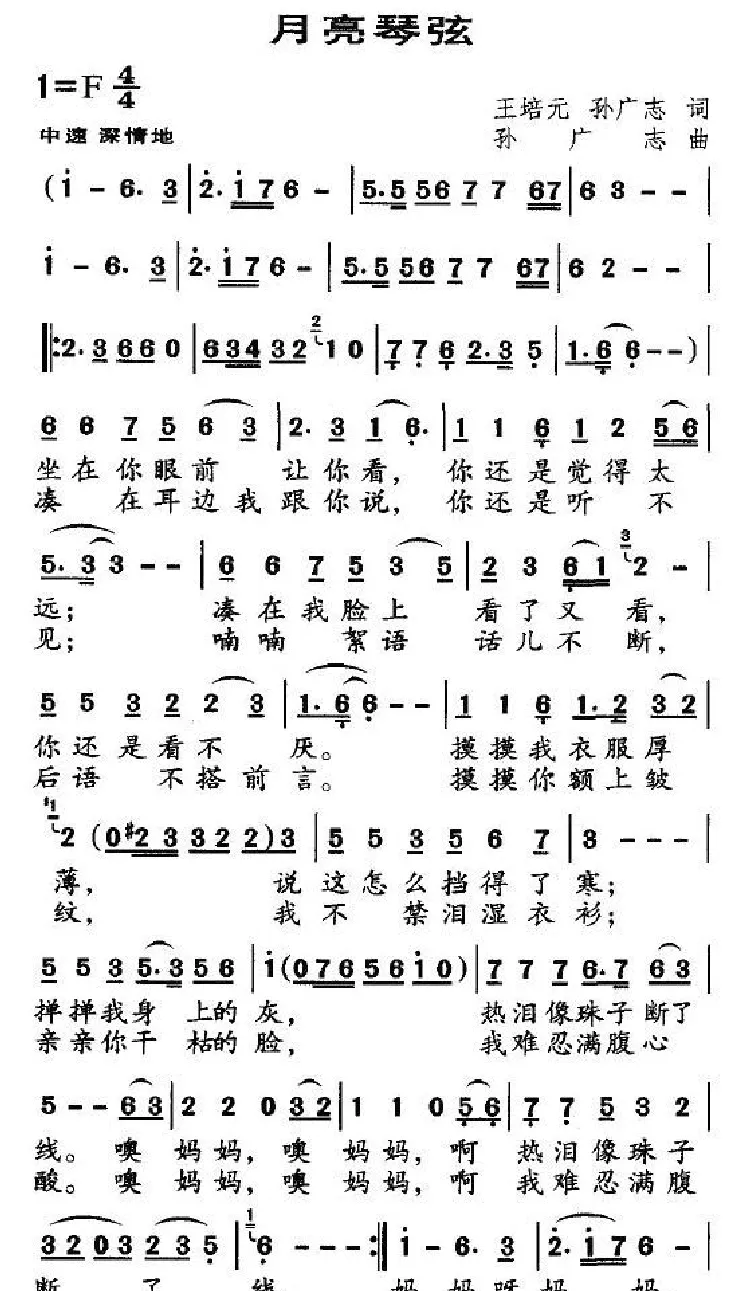 月亮琴弦
1=F 4/4
王培元 孙广志 词
中速 深情地
孙 广 志 曲
(i - 6. 3 | 2. i 7 6 - | 5. 5 5 6 7 7 6 7 | 6 3 - - |
i - 6. 3 | 2. i 7 6 - | 5. 5 5 6 7 7 6 7 | 6 2 - - |
‖: 2. 3 6 6 0 | 6 3 4 3 2 2 1 0 | 7 7 6 2. 3 5 | 1. 6 6 - - )
6 6 7 5 6 3 | 2. 3 1 6. | 1 1 6 1 2 5 6
坐在你眼前 让你看, 你还是觉得太
凑 在耳边我跟你说, 你还是听 不
5. 3 3 - - | 6 6 7 5 3 5 | 2 3 6 1 3 2 -
远; 凑在我脸上 看了又看,
见; 喃喃 絮语 话儿不断,
5 5 3 2 2 3 | 1. 6 6 - - | 1 1 6 1. 2 3 2
你还是看不 厌。 摸摸我衣服厚
后语 不搭前言。 摸摸你额上皱
#1 2 (0 #2 3 3 2 2 2) 3 | 5 5 3 5 6 7 | 3 - - - |
薄, 说这怎么挡得了寒;
纹, 我不 禁泪湿衣衫;
5 5 3 5. 3 5 6 | i (0 7 6 5 6 i 0) | 7 7 7 6. 7 6 3 |
掸掸我身 上的灰, 热泪像珠子断了
亲亲你干 枯的脸, 我难忍满腹心
5 - - 6 3 | 2 2 0 3 2 | 1 1 0 5 6 | 7 7 5 3 2 |
线。噢 妈妈,噢 妈妈,啊 热泪像珠子
酸。噢 妈妈,噢 妈妈,啊 我难忍满腹
3 2 0 3 2 3 5 | 1 6 - - :‖ i - 6. 3 | 2. i 7 6 - |
断 了 线 妈 妈呀妈 妈